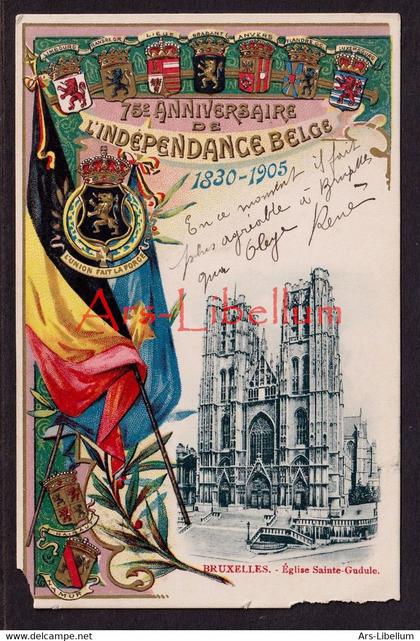 LIMBOURG FLANDRE OR. LIEGE BRABANT ANVERS FLANDRE OCC. LUXEMBOURG
75E ANNIVERSAIRE
DE
L'INDÉPENDANCE BELGE
1830-1905
En ce moment il fait
plus agréable à Bruxelles
qu'à
René
L'UNION FAIT LA FORCE
Ars-Libellum
HAINAUT
NAMUR
BRUXELLES. - Église Sainte-Gudule.
delcampe.net
Ars-Libellum